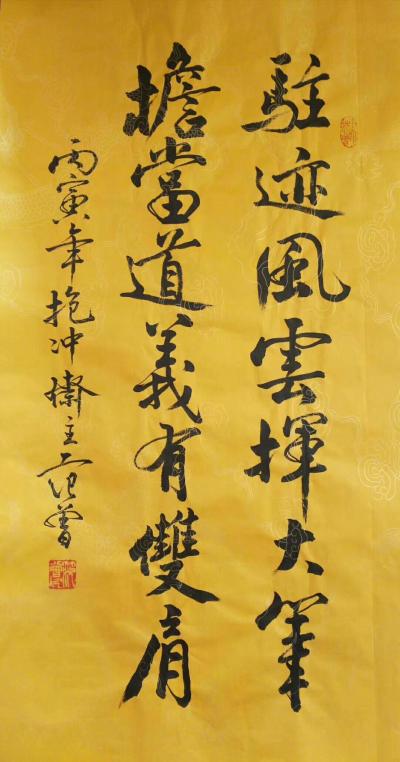 駐迹風雲揮大筆
擔當道義有雙肩
丙寅年抱冲齋主范曾